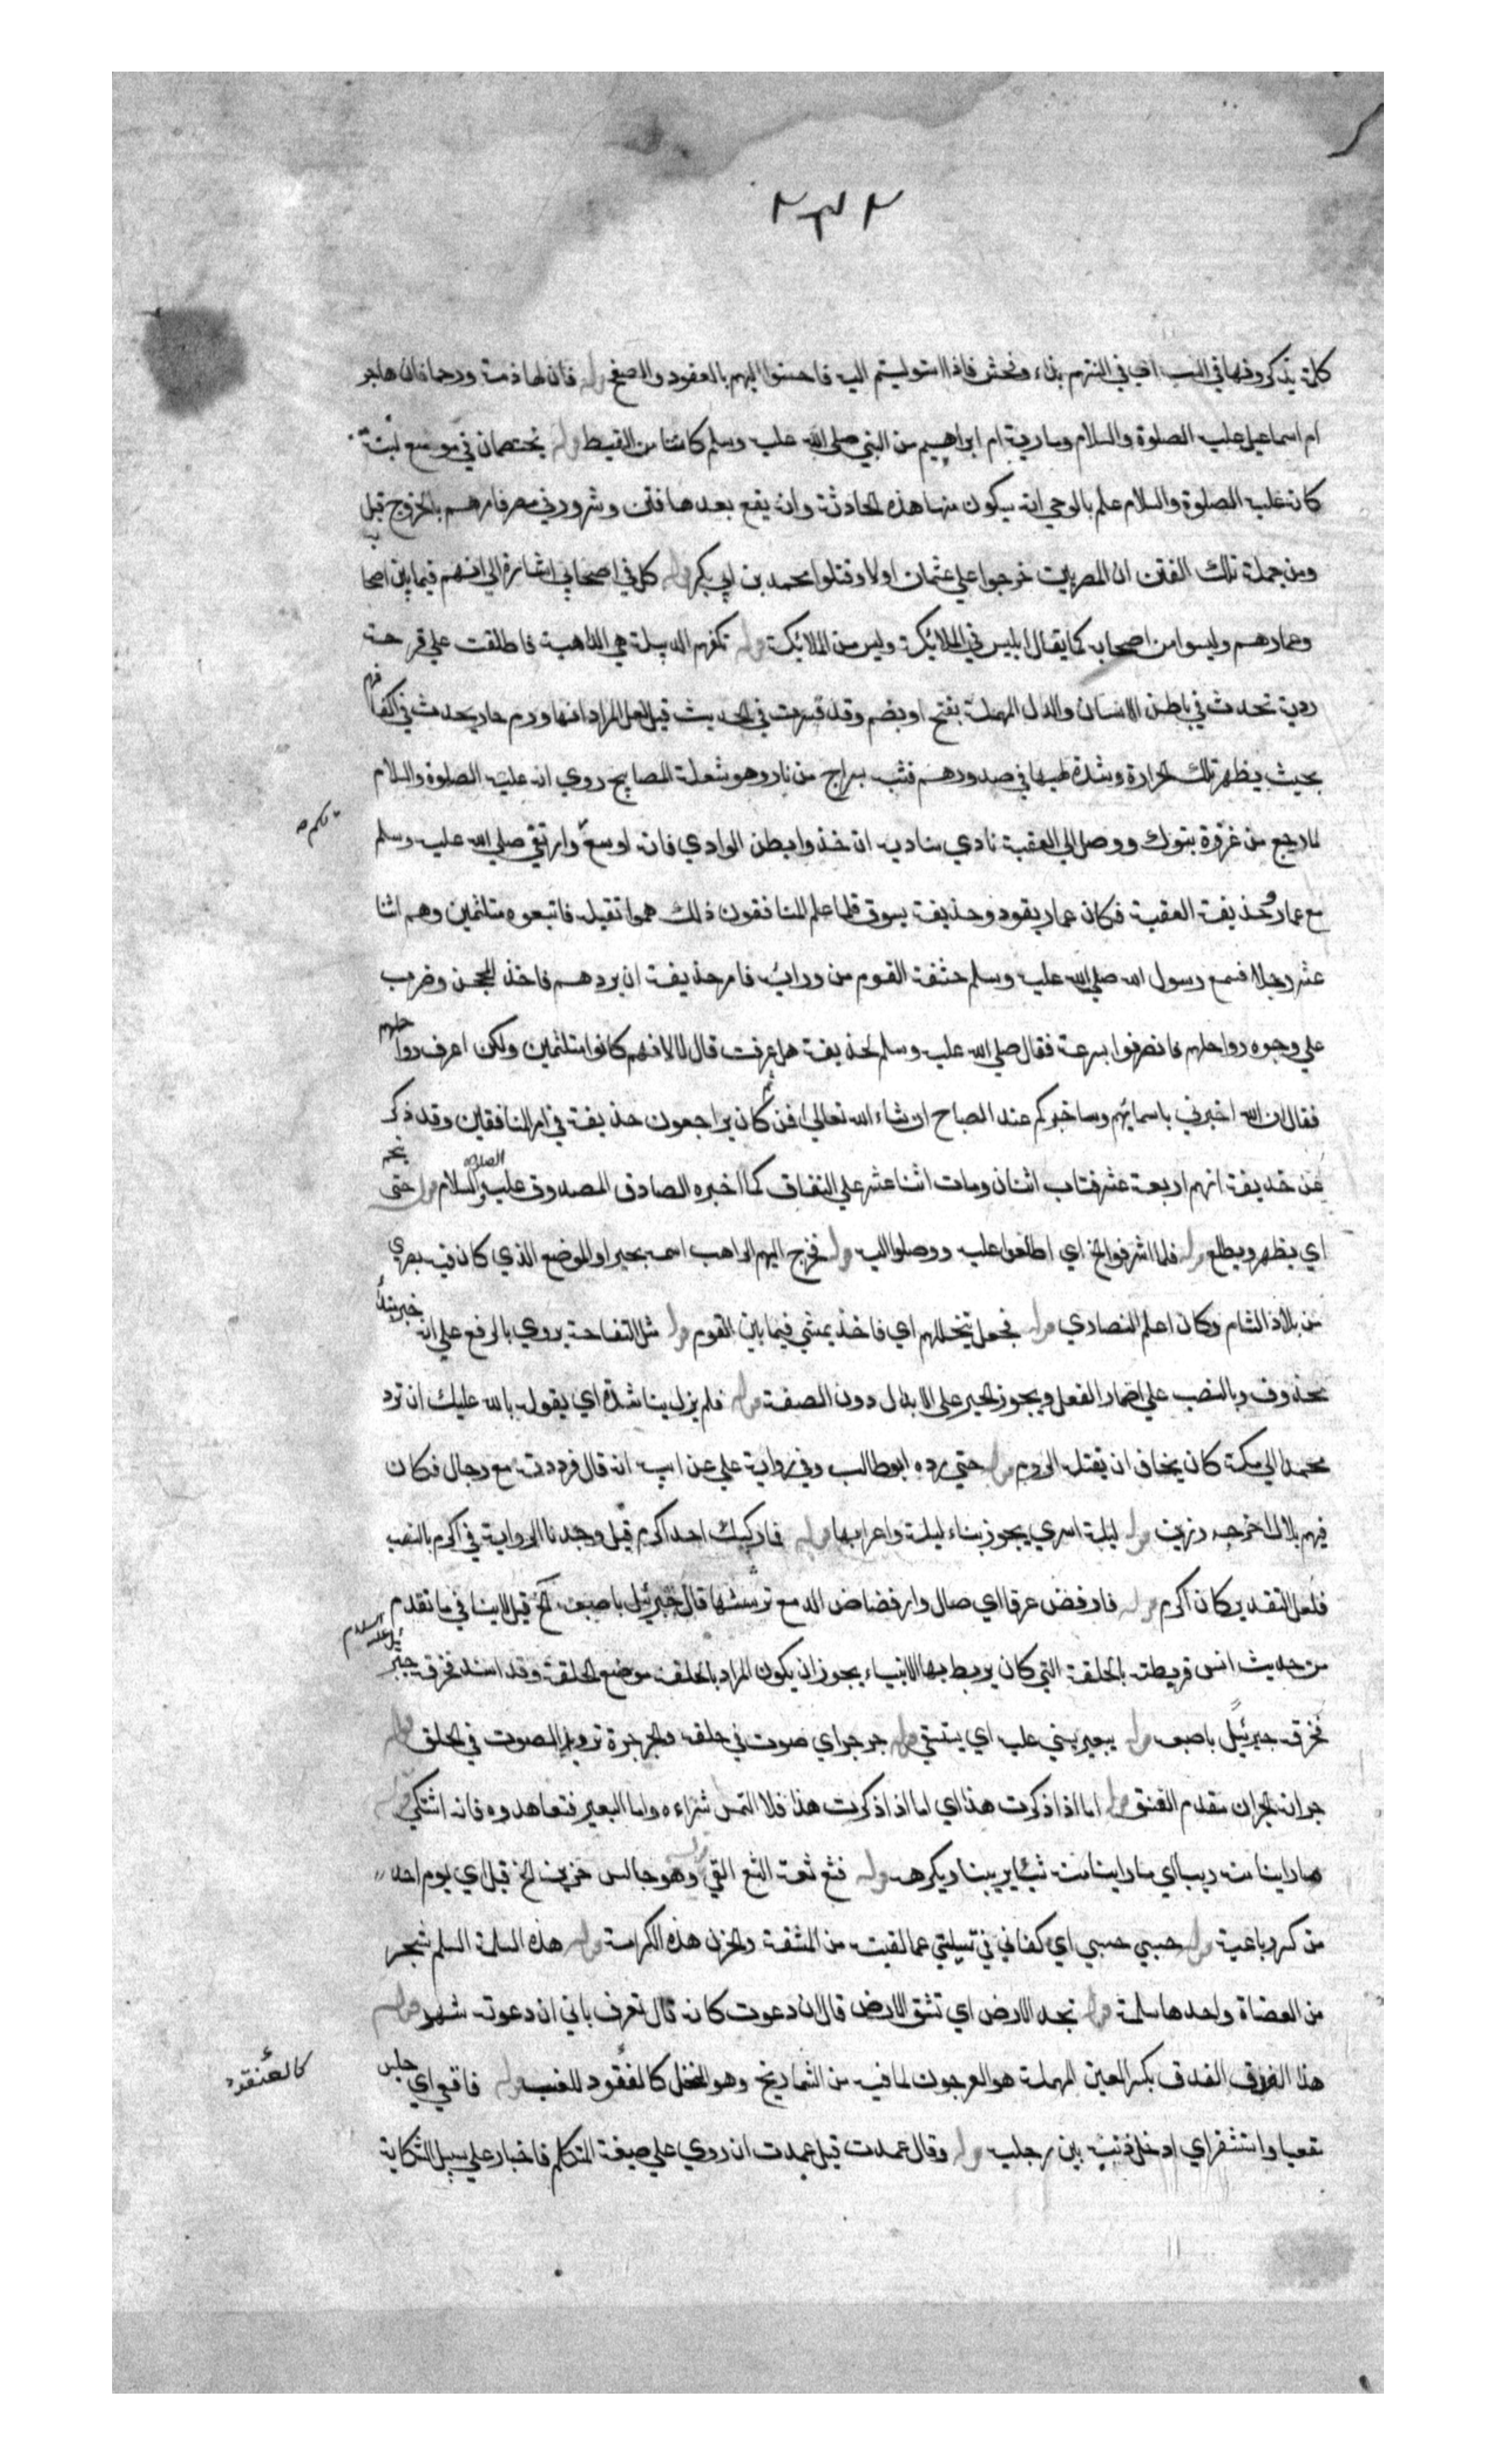 ٢٣٢
كلمة يذكرونها في السب اي في السنتهم بذاء وفحش فاذا استوليتم اليه فاحسنوا اليهم بالعفو والصفح قوله فان لها ذمة ورحما فان هاجر
ام اسماعيل عليه الصلوة والسلام ومارية ام ابراهيم من النبي صلي الله عليه وسلم كانتا من القبط قوله يختصمان في موضع لبنة
كانه عليه الصلوة والسلام علم بالوحي انه سيكون منها هذه الحادثة وانه يقع بعدها فتن وشرور في مصر فامرهم بالخروج قبل
ومن جملة تلك الفتن ان المصريين خرجوا علي عثمان اولا وقتلوا محمد بن ابي بكر قوله كل في اصحابي اشارة الي انهم فيما بين اصحابه
وعدادهم وليسوا من اصحابه كما يقال ابليس في الملائكة وليس من الملائكة قوله تكفهم الدبيلة هي الداهية فاطلقت علي قرحة
ردية تحدث في باطن الانسان والدال المهملة بفتح او بضم وقد فسرت في الحديث قيل لعل المراد انها ورم حار يحدث في اكتافهم
بحيث يظهر تلك الحرارة وشدة لهبها في صدورهم فشبه بسراج من نار وهو شعلة المصابيح روي انه عليه الصلوة والسلام
لما رجع من غزوة تبوك ووصل الي العقبة نادي مناديه ان خذوا بطن الوادي فانه اوسع وارتقي صلي الله عليه وسلم
لكم صح
مع عمار وحذيفة العقبة فكان عمار يقود وحذيفة يسوق فلما علم المنافقون ذلك هموا بقتله فاتبعوه متلثمين وهم اثنا
عشر رجلا فسمع رسول الله صلي الله عليه وسلم خشفة القوم من ورائه فامر حذيفة ان يردهم فاخذ المحجن وضرب
علي وجوه رواحلهم فانصرفوا بسرعة فقال صلي الله عليه وسلم لحذيفة هل عرفت قال لا لانهم كانوا متلثمين ولكن اعرف رواحلهم
فقال ان الله اخبرني باسمائهم وساخبركم عند الصباح ان شاء الله تعالي فمن ثم كان يراجعون حذيفة في امر المنافقين وقد ذكر
عن حذيفة انهم اربعة عشر فتاب اثنان ومات اثنا عشر علي النفاق كما اخبره الصادق المصدوق عليه الصلوة والسلام قوله حتى ينجم
اي يظهر ويطلع قوله فلما اشرفوا الخ اي اطلعوا عليه ووصلوا اليه قوله فخرج اليهم الراهب اسمه بحيرا والموضع الذي كان فيه بصري
من بلاد الشام وكان اعلم النصاري قوله فجعل يتخللهم اي فاخذ يمشي فيما بين القوم قوله مثل التفاحة يروي بالرفع علي انه خبر مبتدأ
محذوف وبالنصب علي اضمار الفعل ويجوز الجر علي الابدال دون الصفة قوله فلم يزل يناشده اي يقول بالله عليك ان ترد
محمدا الي مكة كان يخاف ان يقتله الروم قوله حتي رده ابو طالب وفي رواية علي عن ابيه انه قال فرددته مع رجال فكان
فيهم بلال اخرجه رزين قوله ليلة اسري يجوز بناء ليلة واعرابها قوله فما ركبك احد اكرم قيل وجدنا الرواية في اكرم بالنصب
فلعل التقدير كان اكرم قوله فارفض عرقا اي سال وارفضاض الدمع ترششها قال جبرئيل باصبعه الخ قيل لا ينافي ما تقدم
من حديث انس فربطته بالحلقة التي كان يربط بها الانبياء يجوز ان يكون المراد بالحلقة موضع الحلقة وقد انسد فخرقه جبرئيل عليه السلام
فخرقه جبرئيل باصبعه قوله ببعير يسني عليه اي يستقي قوله جرجر اي صوت في حلقه والجرجرة ترديد الصوت في الحلق قوله
جرانه الجران مقدم العنق قوله اما اذا ذكرت هذا اي اما اذا ذكرت هذا فلا التمس شراءه واما البعير فتعاهدوه فانه اشتكى قوله
ما راينا منه ريبا اي ما راينا منه شيئا يريبنا ويكره قوله فثع ثعة الثع القي قوله وهو جالس حزين الخ قيل اي يوم احد
من كسر رباعيته قوله حسبي حسبي اي كفاني في تسليتي عما لقيت من المشقة والحزن هذه الكرامة قوله هذه السلمة السلم شجر
من العضاة واحدها سلمة قوله تخد الارض اي تشق الارض قال ان دعوت كانه قال تعرف باني ان دعوته شهد قوله
هذا العذق العذق بكسر العين المهملة هو العرجون لما فيه من الشماريخ وهو للنخل كالعنقود للعنب قوله فاقعى اي جلس
كالعنقود
مقعيا واستثفر اي ادخل ذنبه بين رجليه قوله وقال عمدت قيل عمدت ان روي علي صيغة المتكلم فاخبار علي سبيل الشكاية